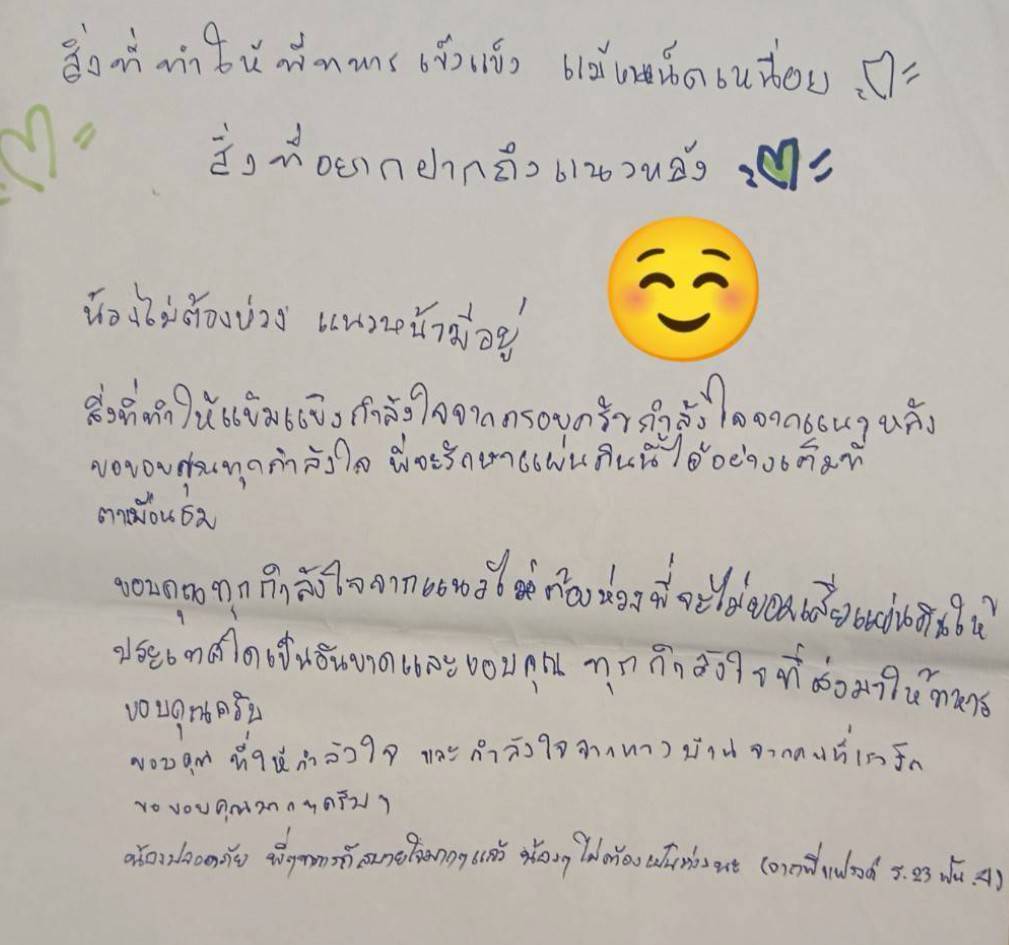 สิ่งที่ ทำให้ พี่ทหาร เข้งแข็ง แม้เหน็ดเหนื่อย
สิ่ง ที่อยากฝากถึงแนวหลัง
น้องไม่ต้องห่วง แนวหน้ามีอยู่
สิ่งที่ทำให้แข้มแข็งกำลังใจจากครอบครัวกำลังใจจากแนวหลัง
ขอขอบคุณทุกกำลังใจ พี่จะรักษาแผ่นดินนี้ได้อย่างเต็มที่
ตาเมือนธม
ขอบคุณทุกกำลังใจจากแนวไม่ต้องห่วงพี่จะไม่ยอมเสียแผ่นดินให้
ประเทศใดเป็นอันขาดและขอบคุณ ทุกกำลังใจที่ส่งมาให้ทหาร
ขอบคุณครับ
ขอบคุณ ที่ให้กำลังใจ และกำลังใจจากทางบ้าน จากคนที่เรารัก
ขอขอบคุณมากๆครับๆ
น้องปลอดภัย พี่ๆทหารก็สบายใจมากๆแล้ว น้องๆไม่ต้องเป็นห่วงนะ (จากพี่แฟรงค์ ร.23 พัน.4)